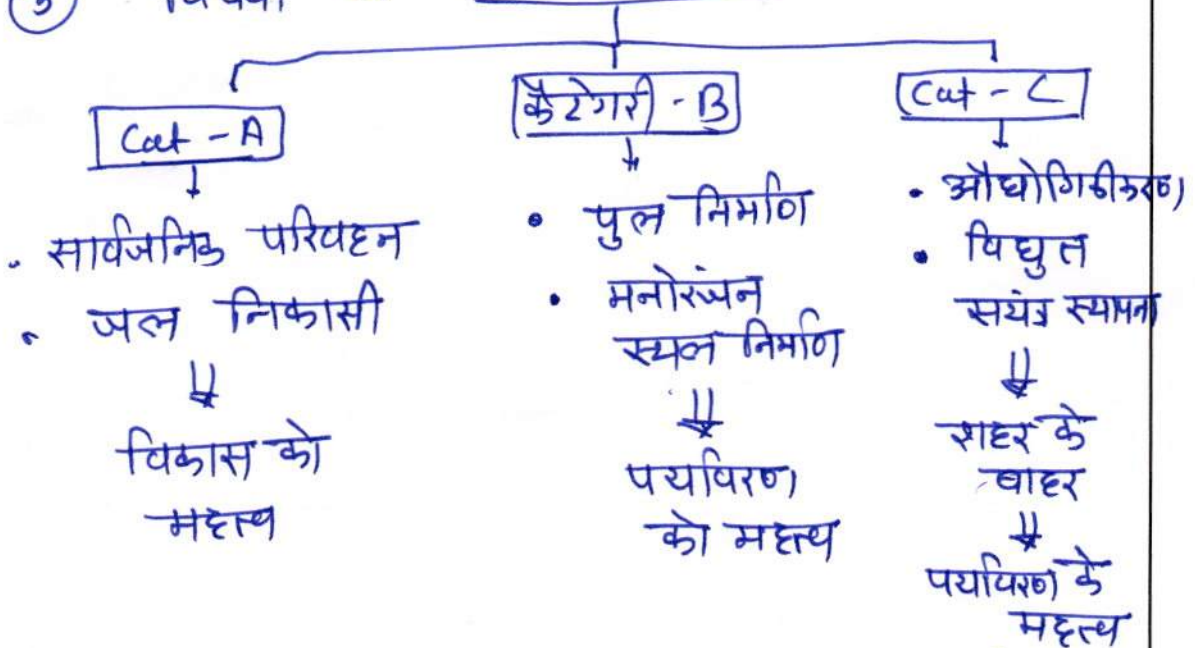 ③
Cat - A
कैटेगरी - B
Cat - C
• सार्वजनिक परिवहन
• जल निकासी
⇓
विकास को
महत्त्व
• पुल निर्माण
• मनोरंजन
स्थल निर्माण
⇓
पर्यावरण
को महत्त्व
• औद्योगिकीकरण,
• विद्युत
सयंत्र स्थापना
⇓
शहर के
बाहर
⇓
पर्यावरण के
महत्त्व